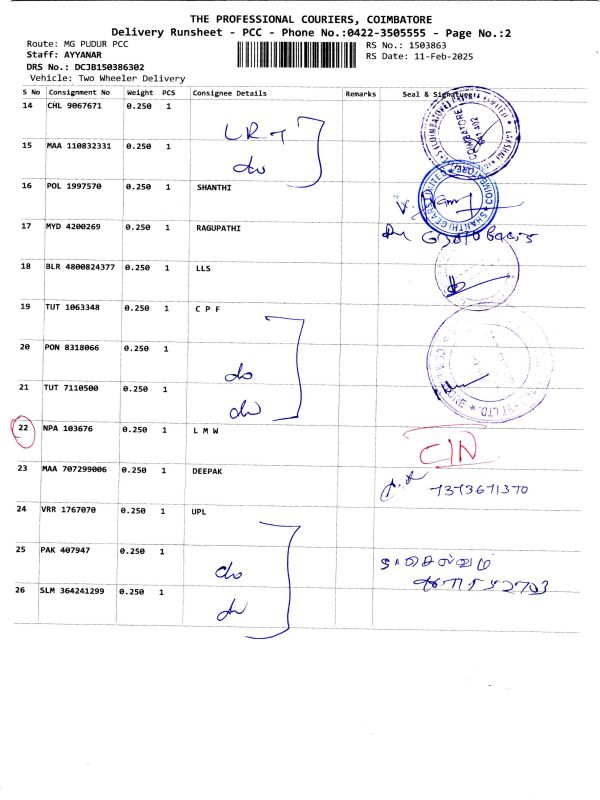 THE PROFESSIONAL COURIERS, COIMBATORE
Delivery Runsheet - PCC - Phone No.:0422-3505555 - Page No.:2
Route: MG PUDUR PCC RS No.: 1503863
Staff: AYYANAR RS Date: 11-Feb-2025
DRS No.: DCJB150386302
Vehicle: Two Wheeler Delivery
S No Consignment No Weight PCS Consignee Details Remarks Seal & Signature
14 CHL 9067671 0.250 1
LRT
15 MAA 110832331 0.250 1
do
16 POL 1997570 0.250 1 SHANTHI
17 MYD 4200269 0.250 1 RAGUPATHI
18 BLR 4800824377 0.250 1 LLS
19 TUT 1063348 0.250 1 C P F
20 PON 8318066 0.250 1
do
21 TUT 7110500 0.250 1
do
22 NPA 103676 0.250 1 L M W CIN
23 MAA 707299006 0.250 1 DEEPAK 7373671370
24 VRR 1767070 0.250 1 UPL
25 PAK 407947 0.250 1
do
26 SLM 364241299 0.250 1
do